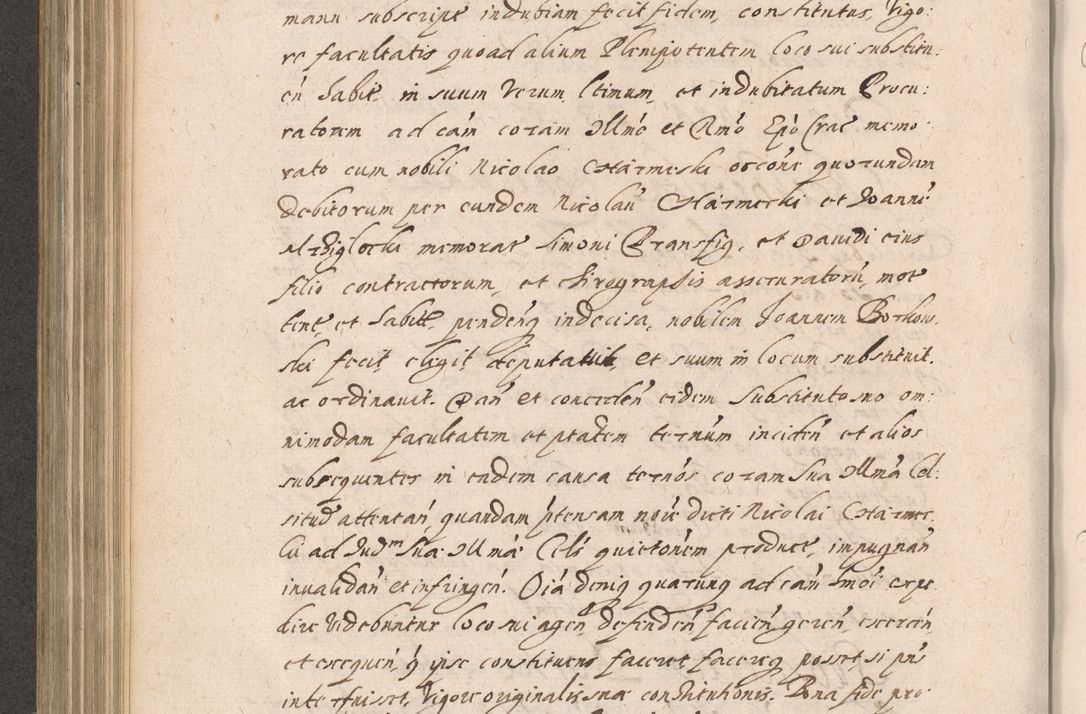 manu subscript indubiam fecit fidem, constitutus, Vigo:
re facultatis quoad alium Plenipotentem loco sui substitu:
en habit, in suum Verum, ltimum, et indubitatum Procu:
ratorem ad cam coram Illmo et Rmo Epo Crac memo
rato cum nobili Nicolao Charmeski occone quorundam
debitorum per eundem Nicolau Charmeski et Joanne
memorat Simoni Pransfig, et Dauidi eius
filio contractorum, et Chirographis asseruratoru, mot
tent, et habit, penden indecisa, nobilem Joannem Borkow
ski fecit elegit deputauit, et suum in locum substituit.
ac ordinauit. Dan et conceden eidem Substituto suo om:
nimodam facultatem et ptatem ternum inciden et alios
subsequentes in eadem causa ternos coram Sua Illma Cel:
situd attentan, quandam ptensam noie dicti Nicolai Charmes
ki ad Judm Sua Illma Cels quietonem product, impugnan
inualidan et infringen. Oia deniq quacunq ad cam smoi expe
dire Videbuntur loco sui agen, defenden facien geren exercen,
et exequen, q ipse constituens faceret facereq posset, si pns
interfuisset, Vigore originalis sua constitutionis. Bona fide pro: